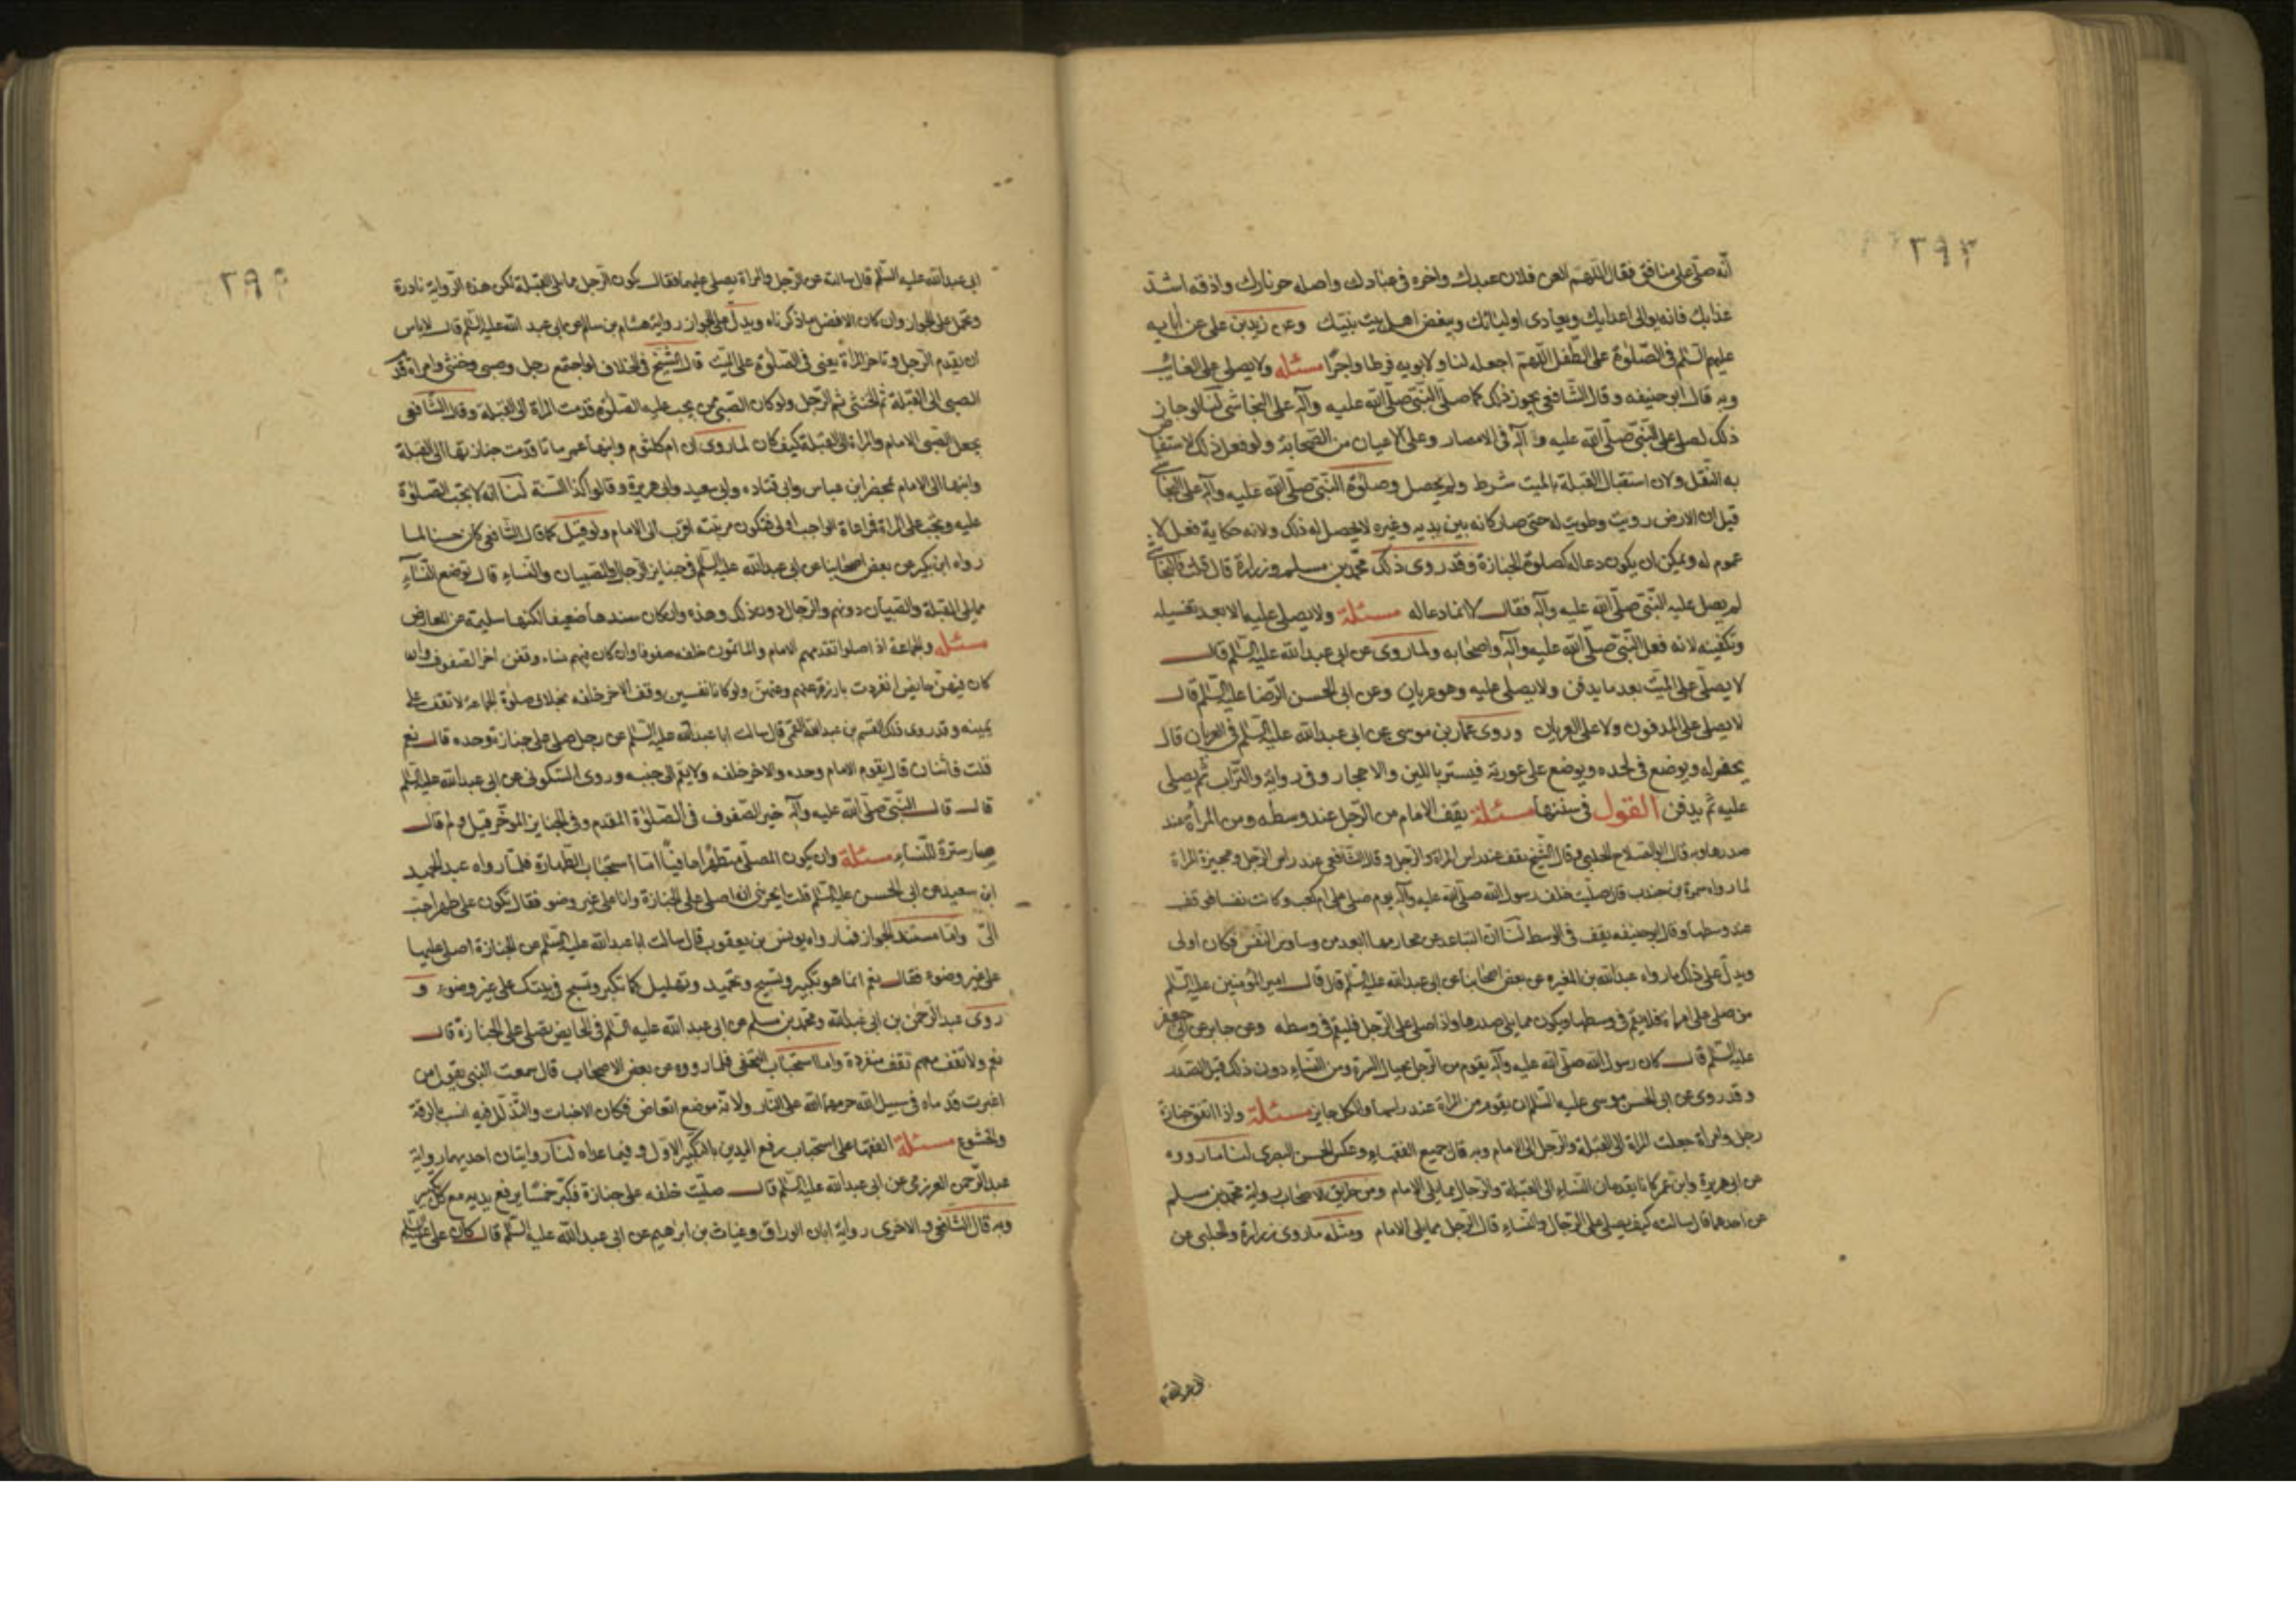 ٢٩٣
انّه صلّى على منافق فقال اللّهمّ العن فلان عبدك واخزه في عبادك واصله حر نارك واذقه اشدّ
عذابك فانه يوالى اعدائك ويعادى اوليائك ويبغض اهل بيت نبيّك وعن زيد بن على عن ابائه
عليهم السّلم فى الصّلوة على الطّفل اللّهمّ اجعله لنا ولابويه فرطا واجرًا مسئله ولا يصلى على الغائب
وبه قال ابو حنيفه وقال الشّافعى يجوز ذلك كما صلّى النّبى صلّى الله عليه وآله على النجاشى لنا لو جاز
ذلك لصلى على النّبى صلّى الله عليه وآله فى الامصار وعلى الاعيان من الصّحابة ولو فعل ذلك لاستفاض
به النّقل ولان استقبال القبلة بالميت شرط ولم يحصل وصلوة النّبى صلّى الله عليه وآله على النجاشى
قيل ان الارض رويت وطويت له حتى صار كانه بين يديه وغيره لا يحصل له ذلك ولانه حكاية فعل لا
عموم له ويمكن ان يكون دعا له كصلوة الجنازة وقد روى ذلك محمّد بن مسلم وزرارة قال قلت فالنجاشى
لم يصل عليه النّبى صلّى الله عليه وآله فقال لا انما دعا له مسئلة ولا يصلى عليه الا بعد تغسيله
وتكفينه لانه فعل النّبى صلّى الله عليه وآله واصحابه ولما روى عن ابى عبد الله عليه السّلم قال
لا يصلّى على الميّت بعد ما يدفن ولا يصلى عليه وهو عريان وعن ابى الحسن الرّضا عليه السّلم قال
لا يصلى على المدفون ولا على العريان وروى عمار بن موسى عن ابى عبد الله عليه السّلم فى العريان قال
يحفر له ويوضع فى لحده ويوضع على عورته فيستر باللبن والاحجار وفى رواية والتّراب ثم يصلى
عليه ثم يدفن القول فى سننها مسئلة يقف الامام من الرّجل عند وسطه ومن المرأة عند
صدرها وبه قال ابو الصلاح الحلبى وقال الشّيخ يقف عند راس المراة والرّجل وقال الشّافعى عند راس الرّجل وعجيزة المراة
لما رواه سمرة بن جندب قال صلّيت خلف رسول الله صلّى الله عليه وآله يوم صلى على ام كعب وكانت نفساء فوقف
عند وسطها وقال ابو حنيفه يقف فى الوسط لنا انّ التباعد عن محارمها ابعد من وساوس النّفس فكان اولى
ويدلّ على ذلك ما رواه عبد الله بن المغيره عن بعض اصحابنا عن ابى عبد الله عليه السّلم قال قال امير المؤمنين عليه السّلم
من صلى على امراة فلا يقم فى وسطها ويكون مما يلى صدرها واذا صلى على الرّجل فليقم فى وسطه وعن جابر عن ابى جعفر
عليه السّلم قال كان رسول الله صلّى الله عليه وآله يقوم من الرّجل بحيال السّرة ومن النّساء دون ذلك قبل الصّدر
وقد روى عن ابى الحسن موسى عليه السّلم ان يقوم من المراة عند راسها والكل جايز مسئلة واذا اتفق جنازة
رجل وامراة جعلت المراة الى القبلة والرّجل الى الامام وبه قال جميع الفقهاء وعكس الحسن البصرى لنا ما رووه
عن ابى هريرة وابن عمر كانا يقدمان النّساء الى القبلة والرّجال مما يلى الامام ومن طريق الاصحاب رواية محمّد بن مسلم
عن احدهما قال سالته كيف يصلى على الرّجال والنّساء قال الرّجل مما يلى الامام ومثله ما روى زرارة والحلبى عن
٢٩٤
ابى عبد الله عليه السّلم قال سالته عن الرّجل والمراة يصلى عليهما فقال يكون الرّجل مما يلى القبلة لكن هذه الرّواية نادرة
وتحمل على الجواز وان كان الافضل ما ذكرناه ويدلّ على الجواز رواية هشام بن سالم عن ابى عبد الله عليه السّلم قال لا باس
ان يقدم الرّجل وتاخر المراة يعنى فى الصّلوة على الميّت قال الشّيخ فى الخلاف لو اجتمع رجل وصبى وخنثى وامراة قدّم
الصبى الى القبلة ثم الخنثى ثم الرّجل ولو كان الصبى ممن يجب عليه الصّلوة قدّمت المراة الى القبلة وقال الشّافعى
يجعل الصّبى الامام والمراة الى القبلة كيف كان لما روى ان ام كلثوم وابنها عمر ماتا قدمت جنازتها الى القبلة
وابنها الى الامام بمحضر ابن عباس وابى قتاده وابى سعيد وابى هريرة وقالوا كذا السّنة لنا انه لا تجب الصّلوة
عليه وتجب على المراة فمراعاة الواجب اولى فتكون مرتبته اقرب الى الامام ولو قيل كما قال الشّافعى كان حسنا لما
رواه ابن بكير عن بعض اصحابنا عن ابى عبد الله عليه السّلم فى جنايز الرّجال والصّبيان والنّساء قال توضع النّساء
مما يلى القبلة والصّبيان دونهم والرّجال دون ذلك وهذه وان كان سندها ضعيفا لكنها سليمة من المعارض
مسئله والجماعة اذا صلوا تقدمهم الامام والمامون خلفه صفوفا وان كان فيهم نساء وقفن اخر الصّفوف وان
كان فيهن حايض انفردت بارزة عنهم وعنهنّ ولو كانا نفسين وقف الاخر خلفه بخلاف صلوة الجماعة لا تقف على
يمينه وقد روى ذلك القسم بن عبد الله القمى قال سالت ابا عبد الله عليه السّلم عن رجل صلى على جنازة وحده قال نعم
قلت فاثنان قال يقوم الامام وحده والاخر خلفه ولا يقم الى جنبه وروى السّكونى عن ابى عبد الله عليه السّلم
قال قال النّبى صلّى الله عليه وآله خير الصّفوف فى الصّلوة المقدم وفى الجنايز الموخّر قيل ولم قال
صار سترة للنّساء مسئلة وان يكون المصلّى متطهّرا حافيًا امّا استحباب الطّهارة فلما رواه عبد الحميد
ابن سعيد عن ابى الحسن عليه السّلم قلت ايجزئنى ان اصلى على الجنازة وانا على غير وضوء فقال تكون على طهر احبّ
الىّ وامّا مستند الجواز فما رواه يونس بن يعقوب قال سالت ابا عبد الله عليه السّلم عن الجنازة اصلى عليها
على غير وضوء فقال نعم انما هو تكبير وتسبيح وتحميد وتهليل كما تكبر وتسبح فى بيتك على غير وضوء و
روى عبد الرّحمن بن ابى عبد الله ومحمّد بن مسلم عن ابى عبد الله عليه السّلم فى الحايض تصلى على الجنازة قال
نعم ولا تقف معهم تقف منفردة واما استحباب التّحفى فلما رووه عن بعض الاصحاب قال سمعت النبى يقول من
اغبرت قدماه فى سبيل الله حرمهما الله على النّار ولانه موضع اتعاض فكان الاخبات والتّذلّل فيه انسب بالرقة
والخشوع مسئلة الفقها على استحباب رفع اليدين بالتكبير الاوّل وفيما عداه لنا روايتان احديهما رواية
عبد الرّحمن العرزمى عن ابى عبد الله عليه السّلم قال صلّيت خلفه على جنازة فكبّر خمسًا يرفع يديه مع كل تكبير
وبه قال الشّافعى والاخرى رواية ابان الوراق وغياث بن ابرهيم عن ابى عبد الله عليه السّلم قال كان على عليه السّلم